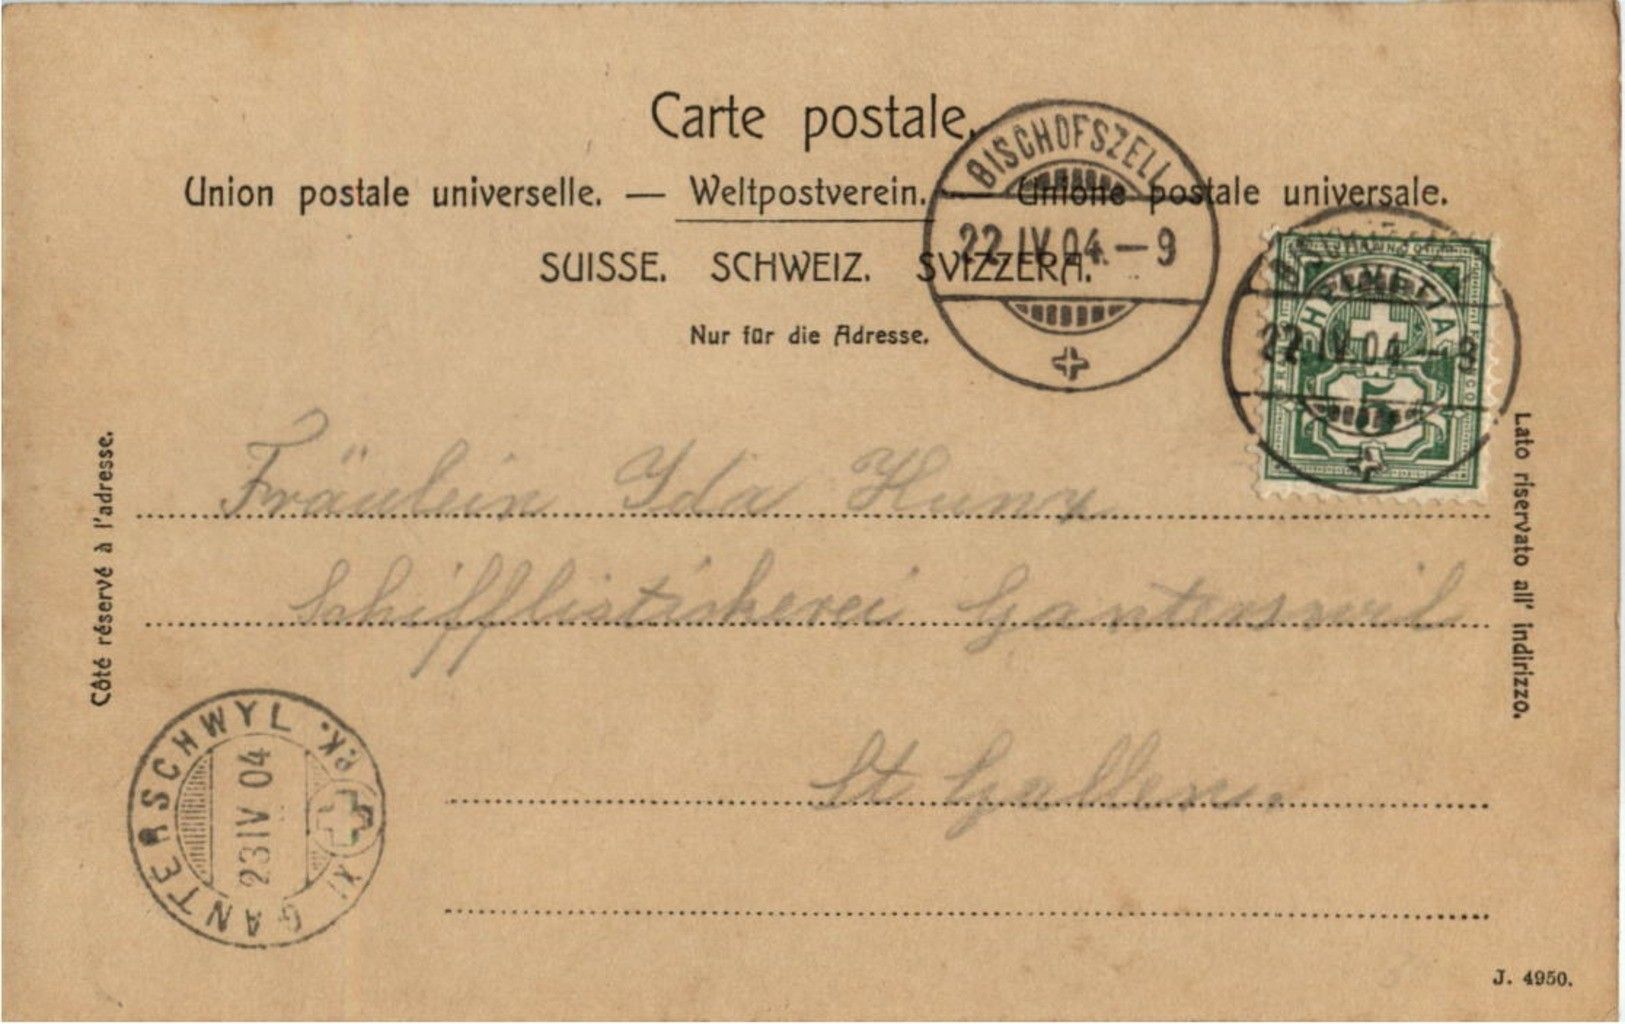 Carte postale.
Union postale universelle. — Weltpostverein. — Unione postale universale.
SUISSE. SCHWEIZ. SVIZZERA.
Nur für die Adresse.
BISCHOFSZELL
22.IV.04.–9
BISCHOFSZELL
22.IV.04.–9
HELVETIA
5
Côté réservé à l'adresse.
Lato riservato all' indirizzo.
Fräulein Ida Huny
Schifflistickerei Ganterswil
St Gallen.
GANTERSCHWYL
23 IV 04
J. 4950.